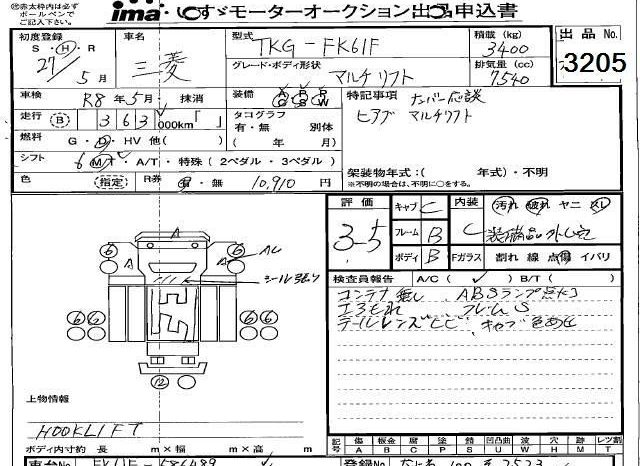 ㊟赤太枠内は必ず
ボールペンで
ご記入下さい。
ima いすゞモーターオークション出品申込書
初度登録 車名 型式 TKG-FK61F 積載 (kg) 3400 出品No.
S・H・R 27年 5月 三菱 グレード・ボディ形状 マルチリフト 排気量 (cc) 7540 3205
車検 R8年5月 抹消 装備
特記事項 ナンバー応談
走行 B 363 000km「 」 タコグラフ 有・無 別体 ( 年 月)
ヒアブ マルチリフト
燃料 G・D・HV 他( )
シフト 6 M/T・A/T・特殊 (2ペダル・3ペダル)
架装物年式:( 年式)・不明
※不明の場合は、不明に○をする。
色 (指定) R券 有・無 10,910円
評価 3.5 キャブ C 内装 C 汚れ 破れ ヤニ
フレーム B 装備品外し
ボディ B Fガラス 割れ 線 点傷 イバリ
検査員報告 A/C( ) B/T( )
コンテナ無し ABSランプ点灯
エアもれ フレームS
テールレンズヒビ キャブ色あせ
A
A A AL
6 6
シール張り
6 6 6 6
12
上物情報
HOOKLIFT
ボディ内寸約 長 m×幅 m×高 m
記号 傷 A 板金 B 腐 C 塗 P 錆 S 凹凸曲 U 波 W 穴 H 要 M レツ割 T
車台No. FK61F-586489
登録No.